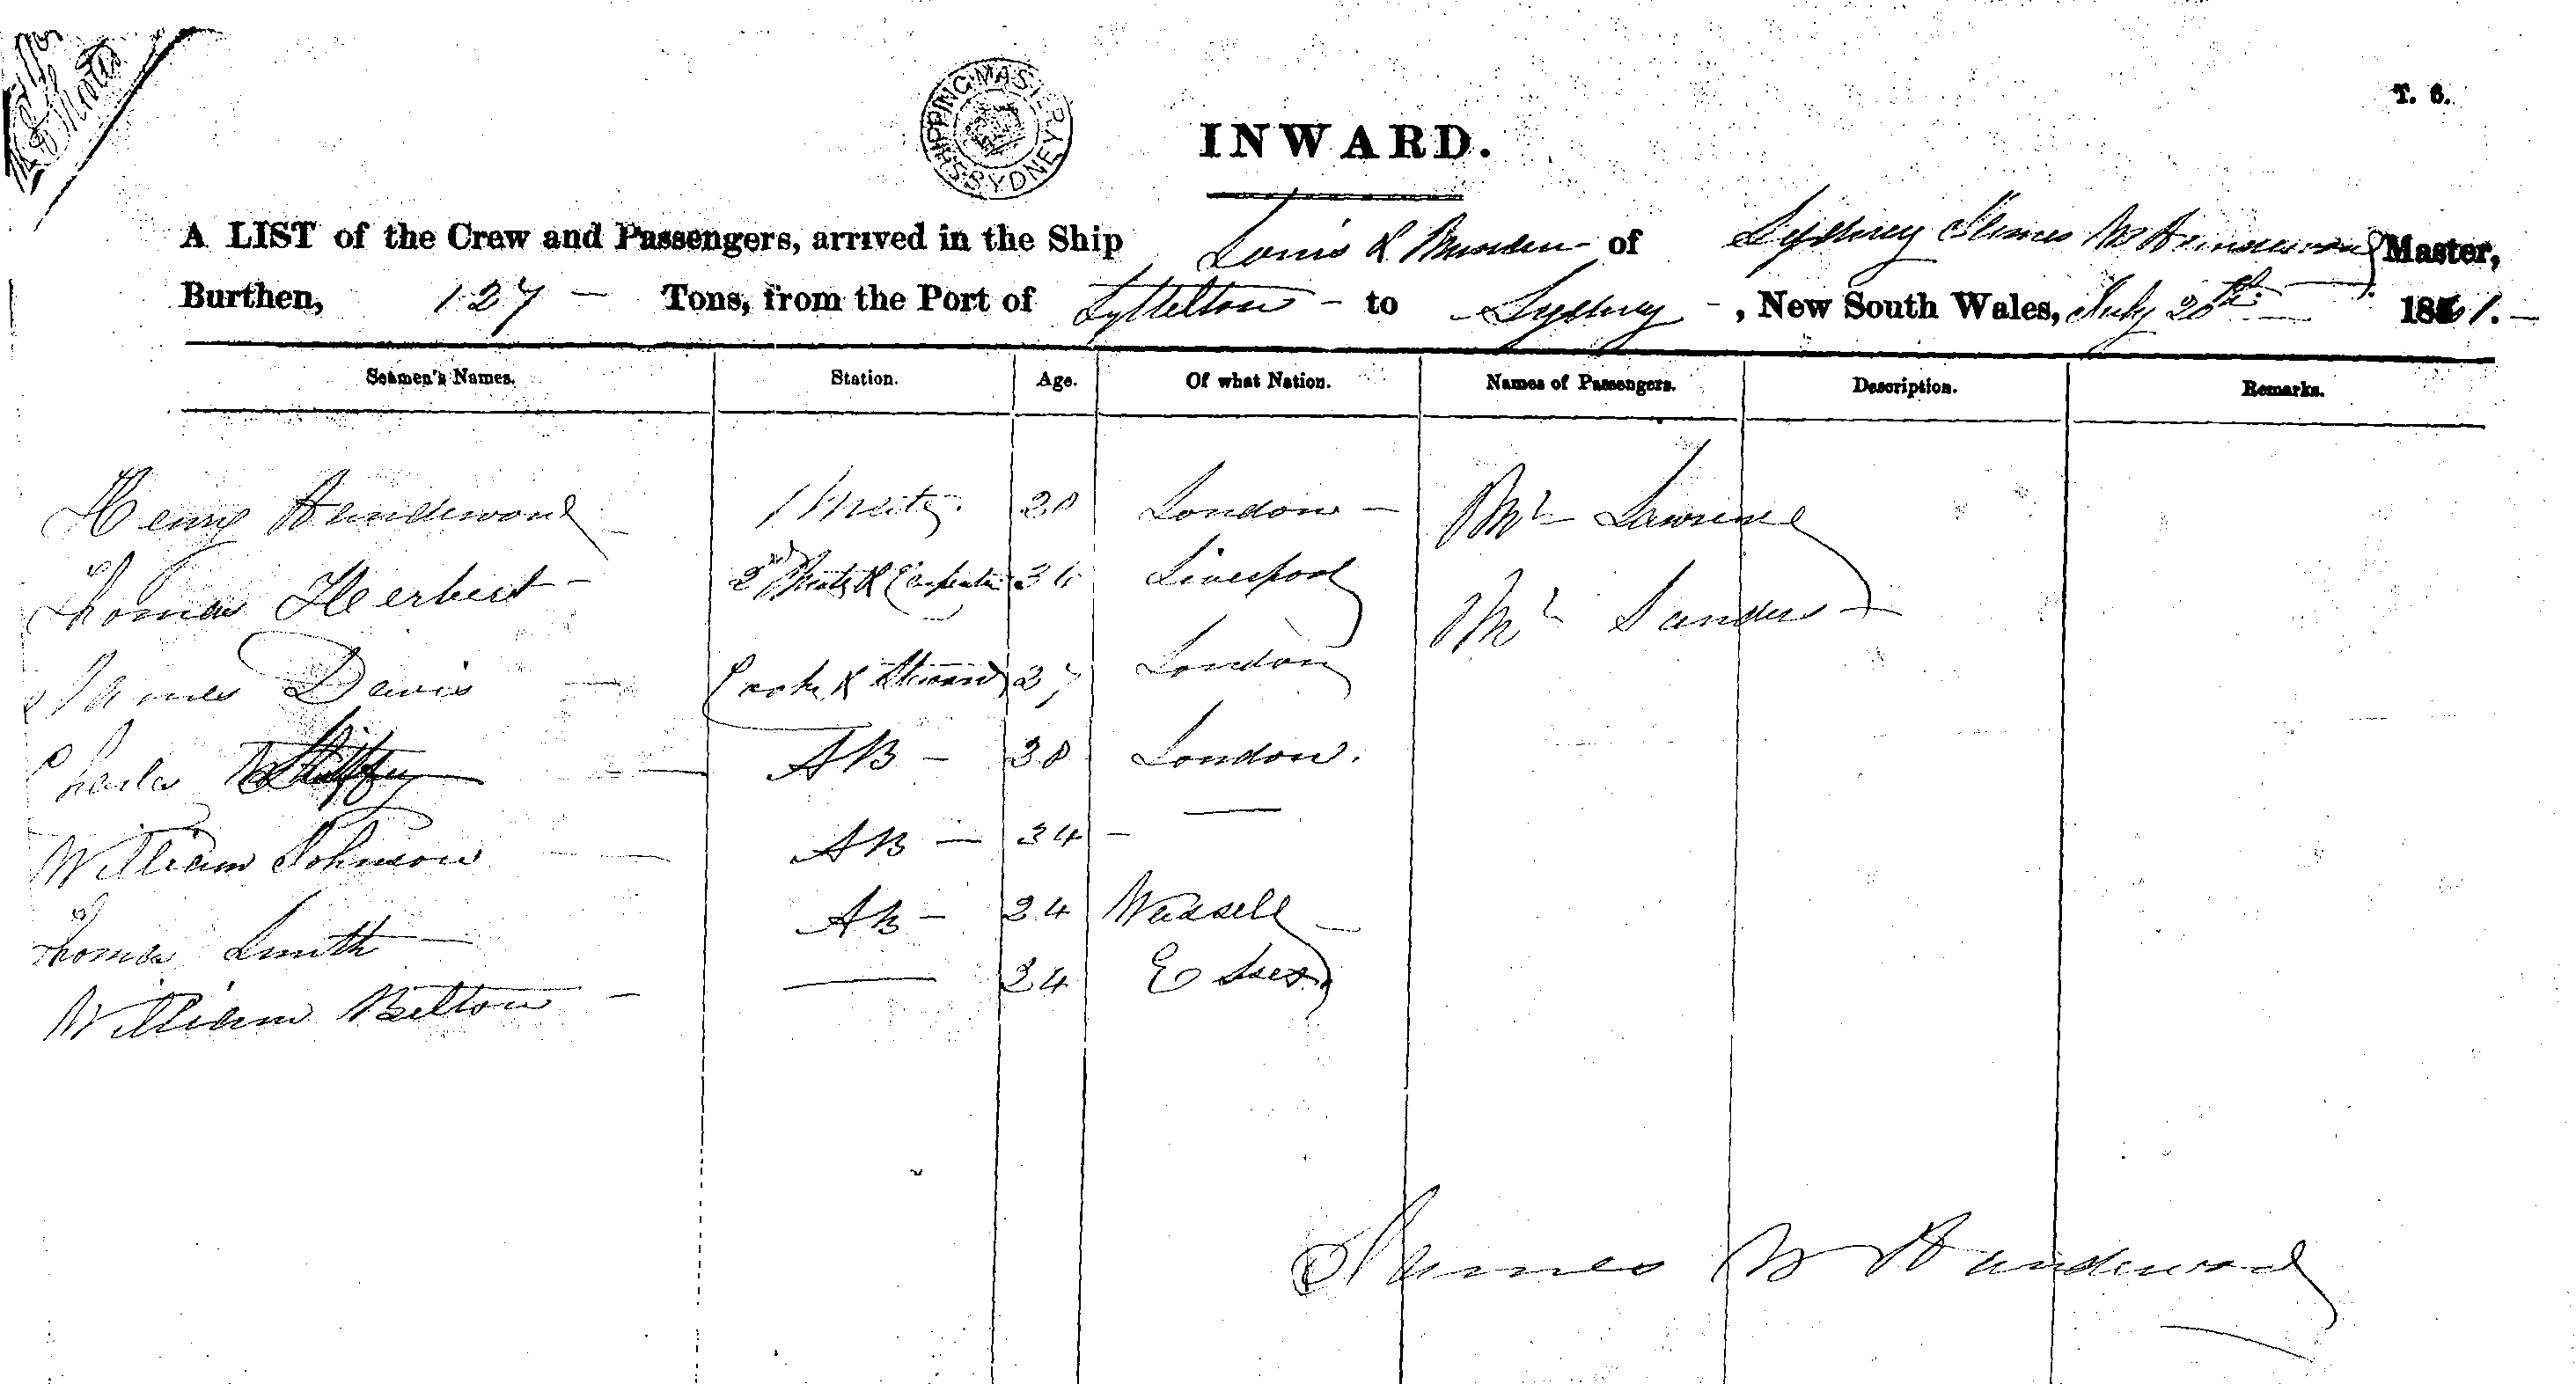 SHIPPING MASTER SYDNEY
T. 6.
INWARD.
A LIST of the Crew and Passengers, arrived in the Ship Louis & of Sydney James W Master,
Burthen, 127 – Tons, from the Port of Lyttelton – to Sydney –, New South Wales, July 20th 1861. –
Seamen's Names. Station. Age. Of what Nation. Names of Passengers. Description. Remarks.
Henry 1 Mate London – Mr Lawrence
Thomas Herbert – 2nd Mate & Carpenter Liverpool Mr Sanders –
James Davis — Cook & Steward 27 London
Charles — AB – London.
William Johnson — AB — 34 – —
Thomas Smith — AB – 24 –
William Belton – — 24 Essex
James W